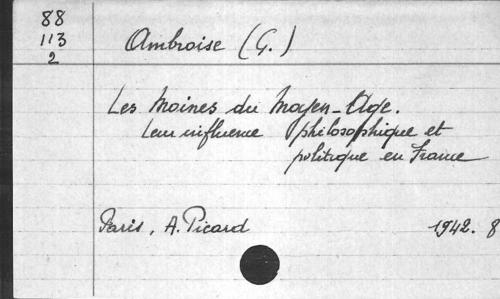 88
113
2
Ambroise (G.)
Les Moines du Moyen-Age.
Leur influence philosophique et
politique en France
Paris, A. Picard 1942. 8